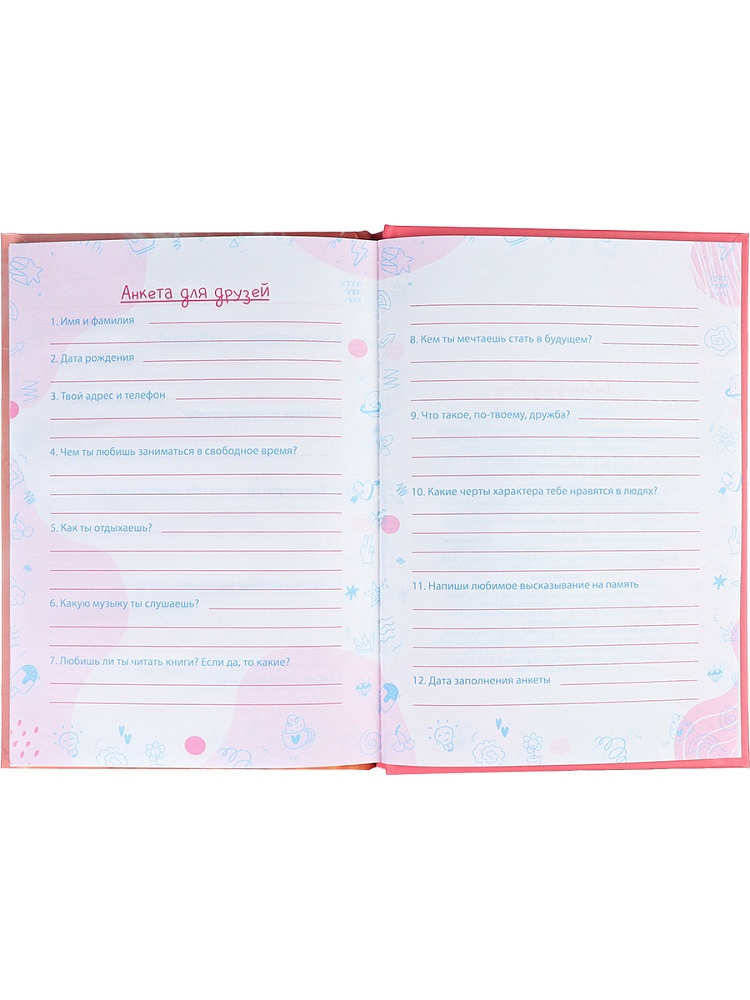 Анкета для друзей
1. Имя и фамилия
2. Дата рождения
3. Твой адрес и телефон
4. Чем ты любишь заниматься в свободное время?
5. Как ты отдыхаешь?
6. Какую музыку ты слушаешь?
7. Любишь ли ты читать книги? Если да, то какие?
8. Кем ты мечтаешь стать в будущем?
9. Что такое, по-твоему, дружба?
10. Какие черты характера тебе нравятся в людях?
11. Напиши любимое высказывание на память
12. Дата заполнения анкеты